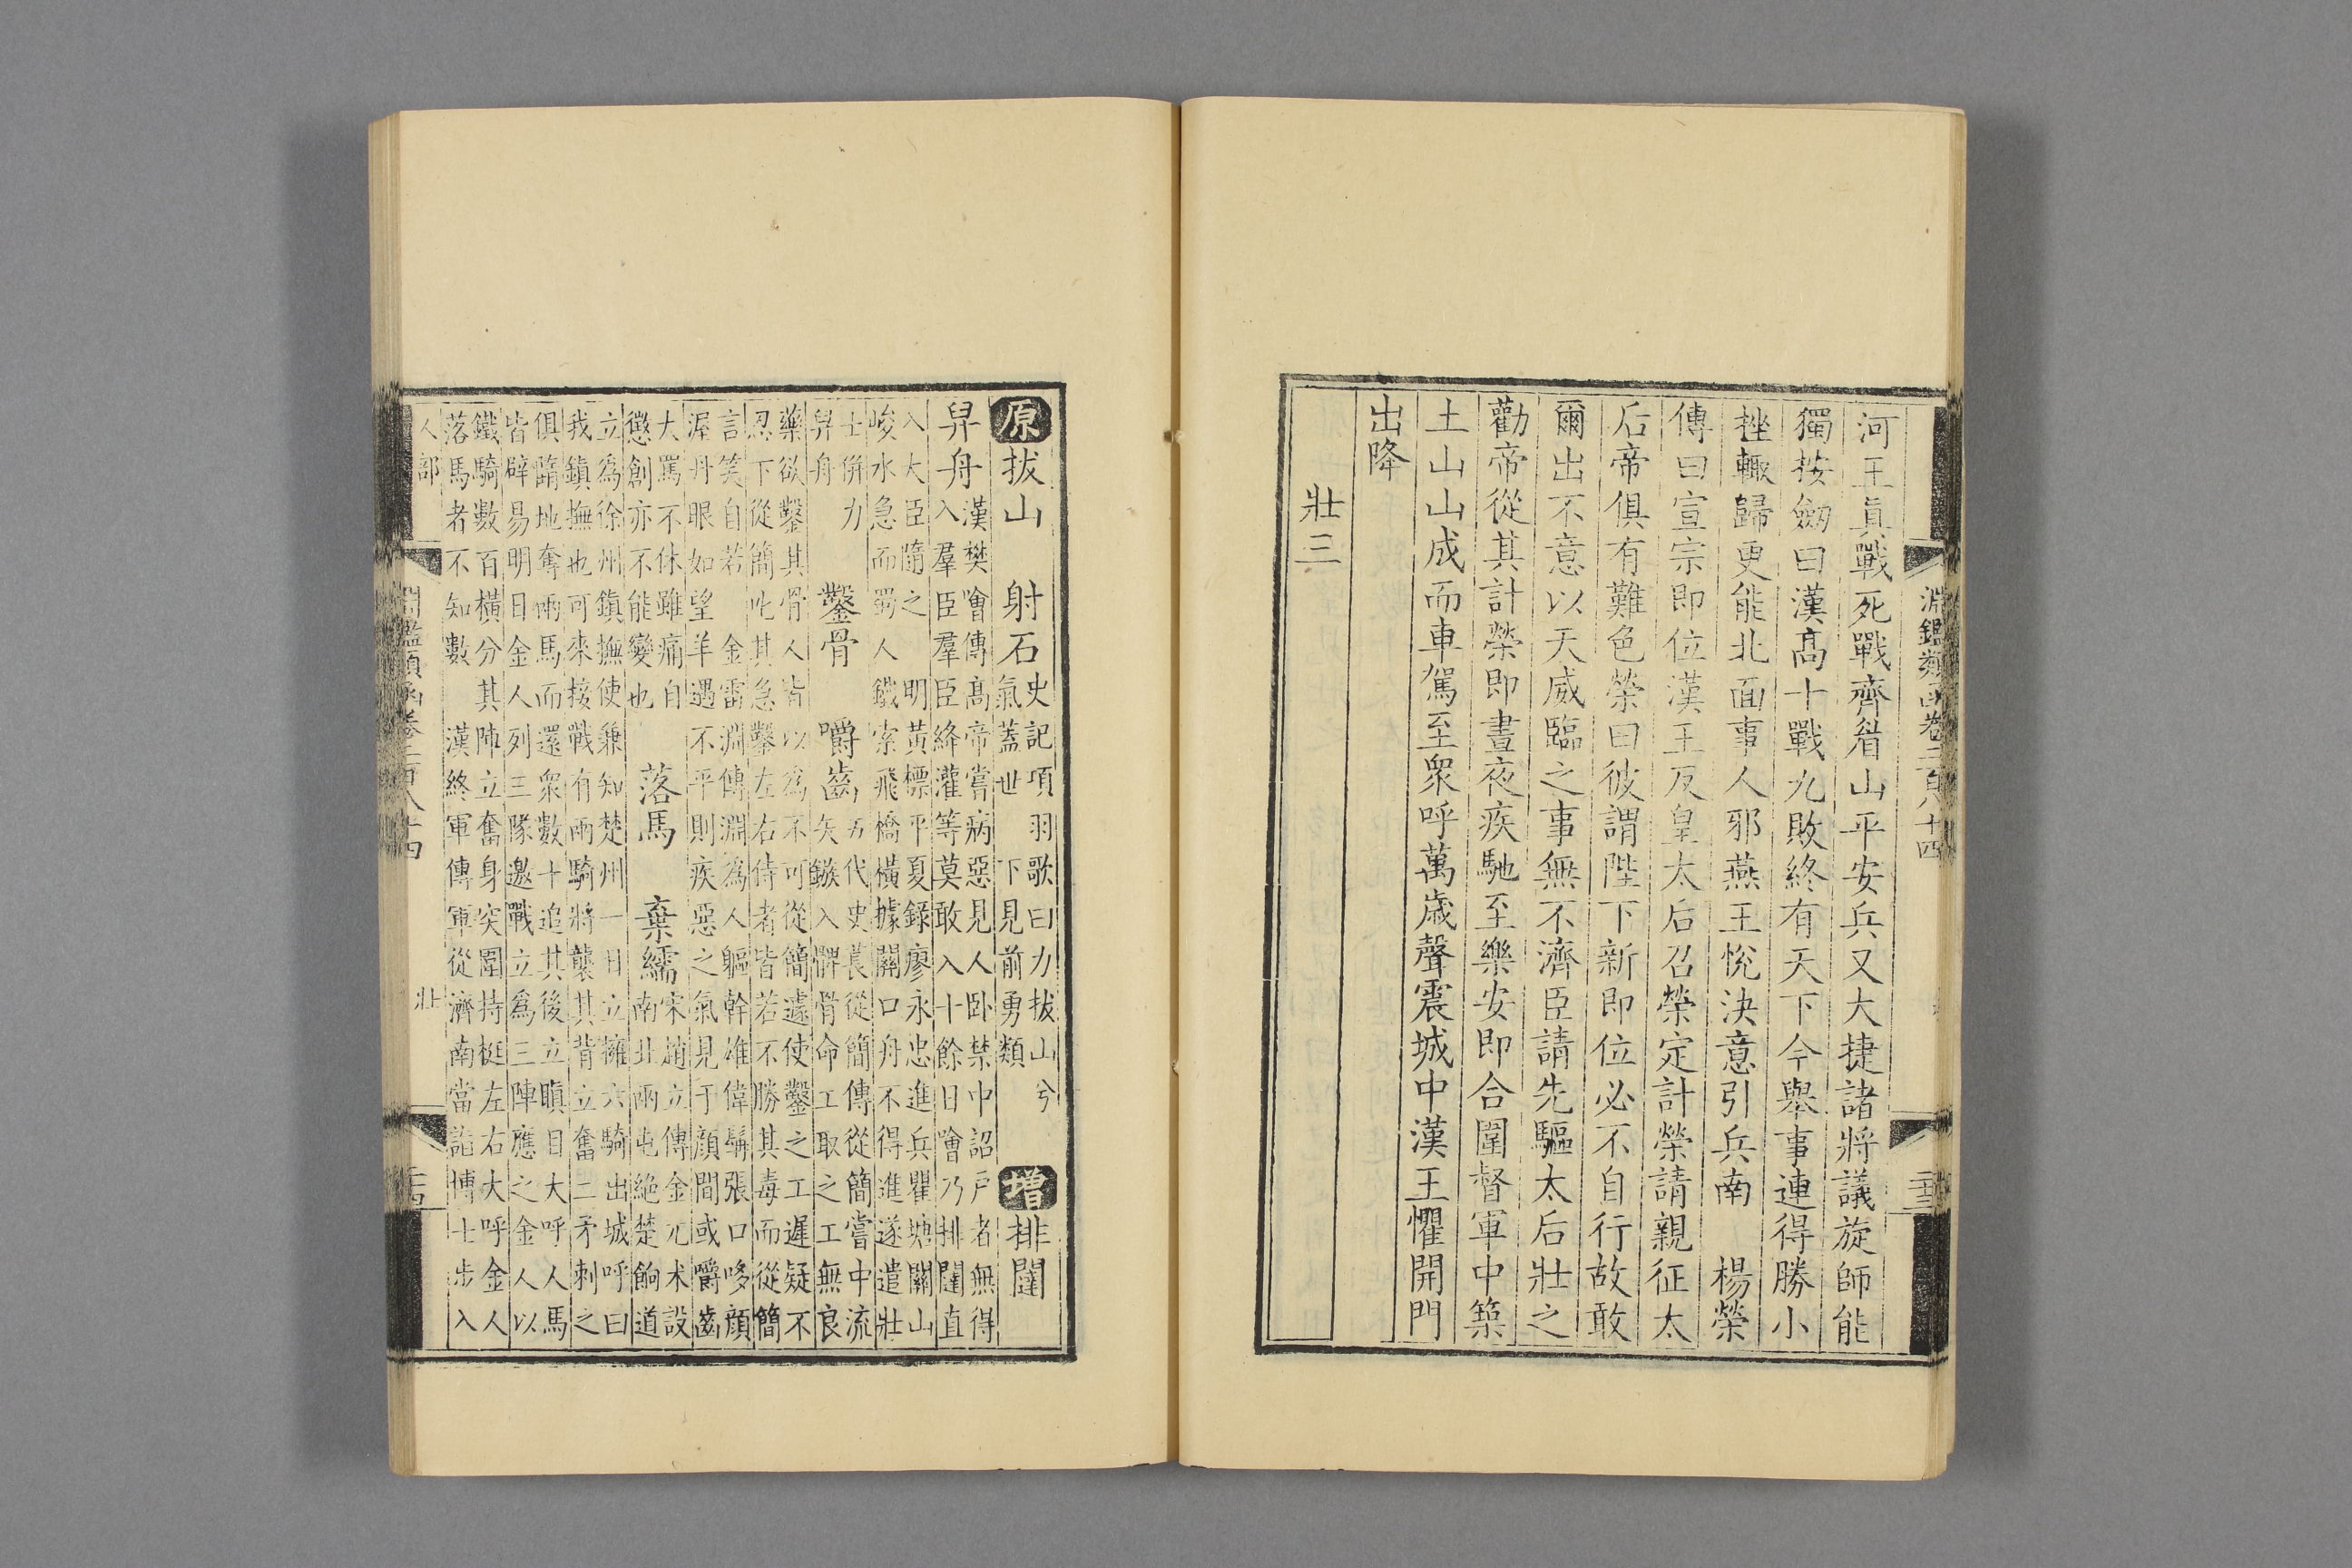 淵鑑類函卷二百八十四
河王真戰死戰齊眉山平安兵又大捷諸將議旋師能
獨按劒曰漢髙十戰九敗終有天下今舉事連得勝小
挫輒歸更能北面事人邪燕王悅決意引兵南　楊榮
傳曰宣宗即位漢王反皇太后召榮定計榮請親征太
后帝俱有難色榮曰彼謂陛下新即位必不自行故敢
爾出不意以天威臨之事無不濟臣請先驅太后壯之
勸帝從其計榮即晝夜疾馳至樂安即合圍督軍中築
土山山成而車駕至衆呼萬歲聲震城中漢王懼開門
出降
壯三
原拔山　射石史記項羽歌曰力拔山兮氣蓋世　下見前勇類　增排闥
舁舟漢樊噲傳高帝嘗病惡見人卧禁中詔戶者無得入羣臣羣臣絳灌等莫敢入十餘日噲乃排闥直
入大臣隨之　明黃標平夏録廖永忠進兵瞿塘關山峻水急而蜀人鐵索飛橋橫據關口舟不得進遂遣壯
士併力舁舟　鑿骨　嚼齒五代史萇從簡傳從簡嘗中流矢鏃入髀骨命工取之工無良
藥欲鑿其骨人皆以為不可從簡遽使鑿之工遲疑不忍下從簡叱其急鑿左右侍者皆若不勝其毒而從簡
言笑自若　金雷淵傳淵為人軀幹雄偉髯張口哆顔渥丹眼如望羊遇不平則疾惡之氣見于顔間或嚼齒
大罵不休雖痛自懲創亦不能變也　落馬　棄繻宋趙立傳金兀术設南北兩屯絶楚餉道
立為徐州鎮撫使兼知楚州一日立擁六騎出城呼曰我鎮撫也可來接戰有兩騎將襲其背立奮二矛刺之
俱隨地奪兩馬而還衆數十追其後立瞋目大呼人馬皆辟易明日金人列三隊邀戰立爲三陣應之金人以
鐵騎數百橫分其陣立奮身突圍持梃左右大呼金人落馬者不知數　漢終軍傳軍從濟南當詣博士步入
人部　淵鑑類函卷二百八十四　壯